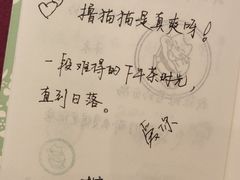 撸狗狗是真爽呀！
一段难得的下午茶时光，
直到日落。
爱你